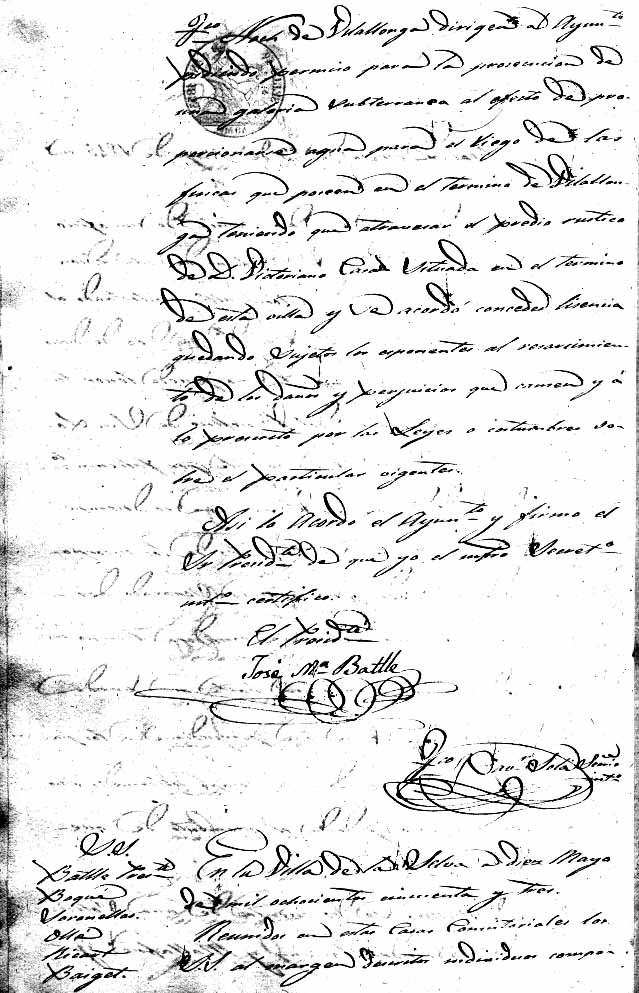 Fco Noet de Vilallonga dirigen al Ayunto
pidiendo permiso para la prosecucion de
una galeria subterranea al efecto de pro
porcionarse agua para el riego de las
fincas que poseen en el termino de Vilallon
ga teniendo que atravesar el predio rustico
de D. Casas situada en el termino
de esta villa y se acordó conceder licencia
quedando sujetos los esponentes al resarcimien
to de los daños y perjuicios que causen y á
lo prescrito por las Leyes o costumbres so
bre el particular vigentes.
Asi lo Acordó el Ayunto y firmo el
Sr Presidte de que yo el infro Secreto
into certifico.
El Presidte
José Ma Batlle
Fco Solá Secrio
into
S.S.
Batlle Presdte
Boqué
Olle
Ricart
Baiget
En la Villa de la Selva a diez Mayo
de mil ochocientos cincuenta y tres.
Reunidos en estas Casas Consistoriales los
S.S. al margen Inscritos individuos compo